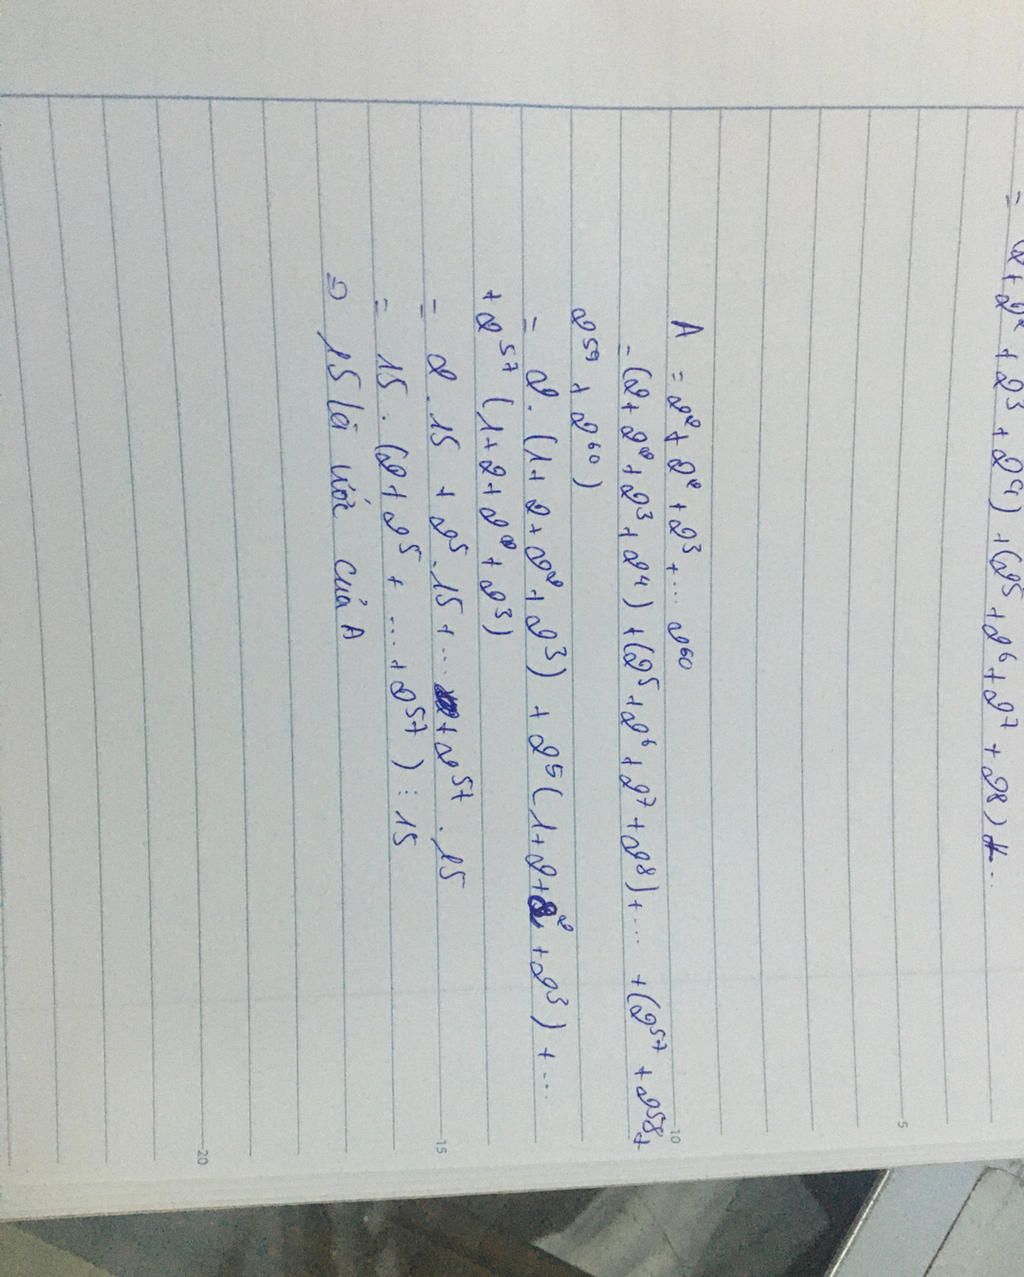 = (2+2² +2³ +2⁴) +(2⁵ +2⁶ +2⁷ +2⁸) +...
5
A = 2² + 2² +2³ +... 2⁶⁰
10
= (2+2²+2³+2⁴) +(2⁵ +2⁶ +2⁷ +2⁸) +... +(2⁵⁷ +2⁵⁸+
2⁵⁹ +2⁶⁰)
= 2. (1+2+2²+2³) +2⁵ (1+2+2² +2³) +...
+2⁵⁷ (1+2+2²+2³)
= 2.15 + 2⁵.15+... +2⁵⁷.15
15
= 15. (2+2⁵ + ... +2⁵⁷) : 15
=> 15 là ước của A
20